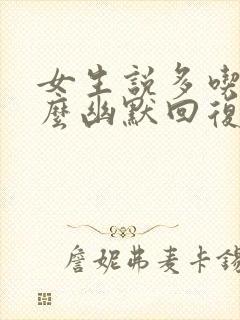 女生説多喫
麼幽默回復
詹妮弗麦卡錫